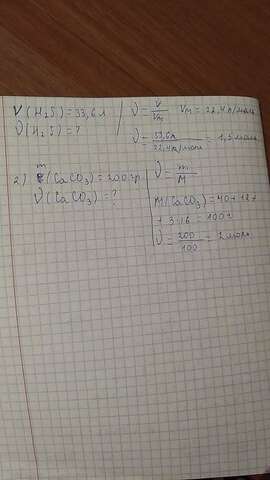 V(H₂S)=33,6л
ν(H₂S)=?
ν = V/Vм Vм = 22,4л/моль
ν = 33,6л/22,4л/моль = 1,5моль
2) m(CaCO₃)=200гр
ν(CaCO₃)=?
ν = m/M
M(CaCO₃)=40+12+
+3·16=100г
ν = 200/100 = 2моль